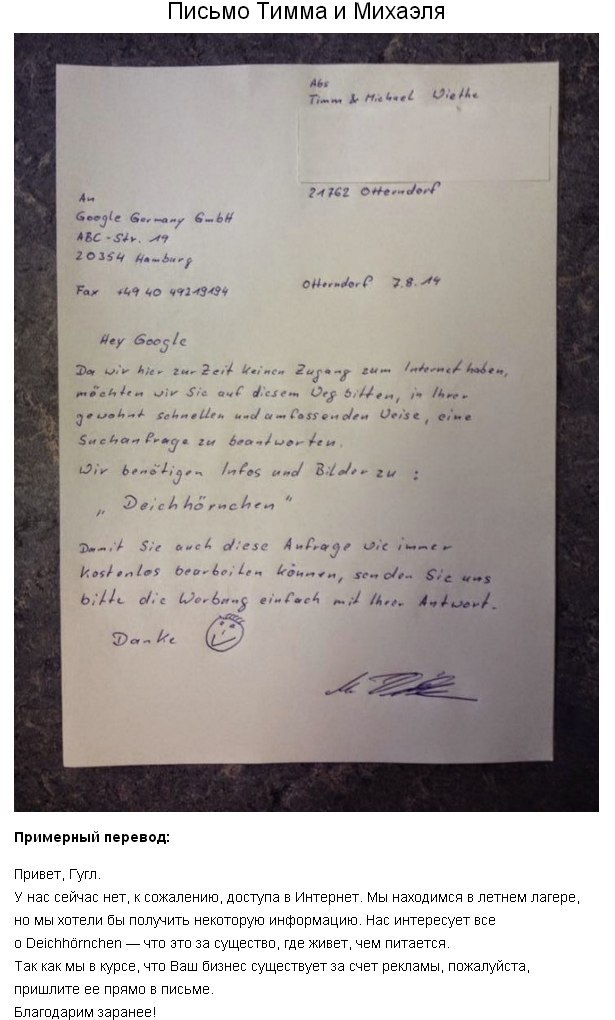 Письмо Тимма и Михаэля
Abs
Timm & Michael Wiethe
21762 Otterndorf
An
Google Germany GmbH
ABC-Str. 19
20354 Hamburg
Fax +49 40 49219194
Otterndorf 7.8.14
Hey Google
Da wir hier zur Zeit keinen Zugang zum Internet haben,
möchten wir Sie auf diesem Weg bitten, in Ihrer
gewohnt schnellen und umfassenden Weise, eine
Suchanfrage zu beantworten.
Wir benötigen Infos und Bilder zu :
„ Deichhörnchen "
Damit Sie auch diese Anfrage wie immer
Kostenlos bearbeiten können, senden Sie uns
bitte die Werbung einfach mit Ihrer Antwort.
Danke
Примерный перевод:
Привет, Гугл.
У нас сейчас нет, к сожалению, доступа в Интернет. Мы находимся в летнем лагере,
но мы хотели бы получить некоторую информацию. Нас интересует все
о Deichhörnchen — что это за существо, где живет, чем питается.
Так как мы в курсе, что Ваш бизнес существует за счет рекламы, пожалуйста,
пришлите ее прямо в письме.
Благодарим заранее!